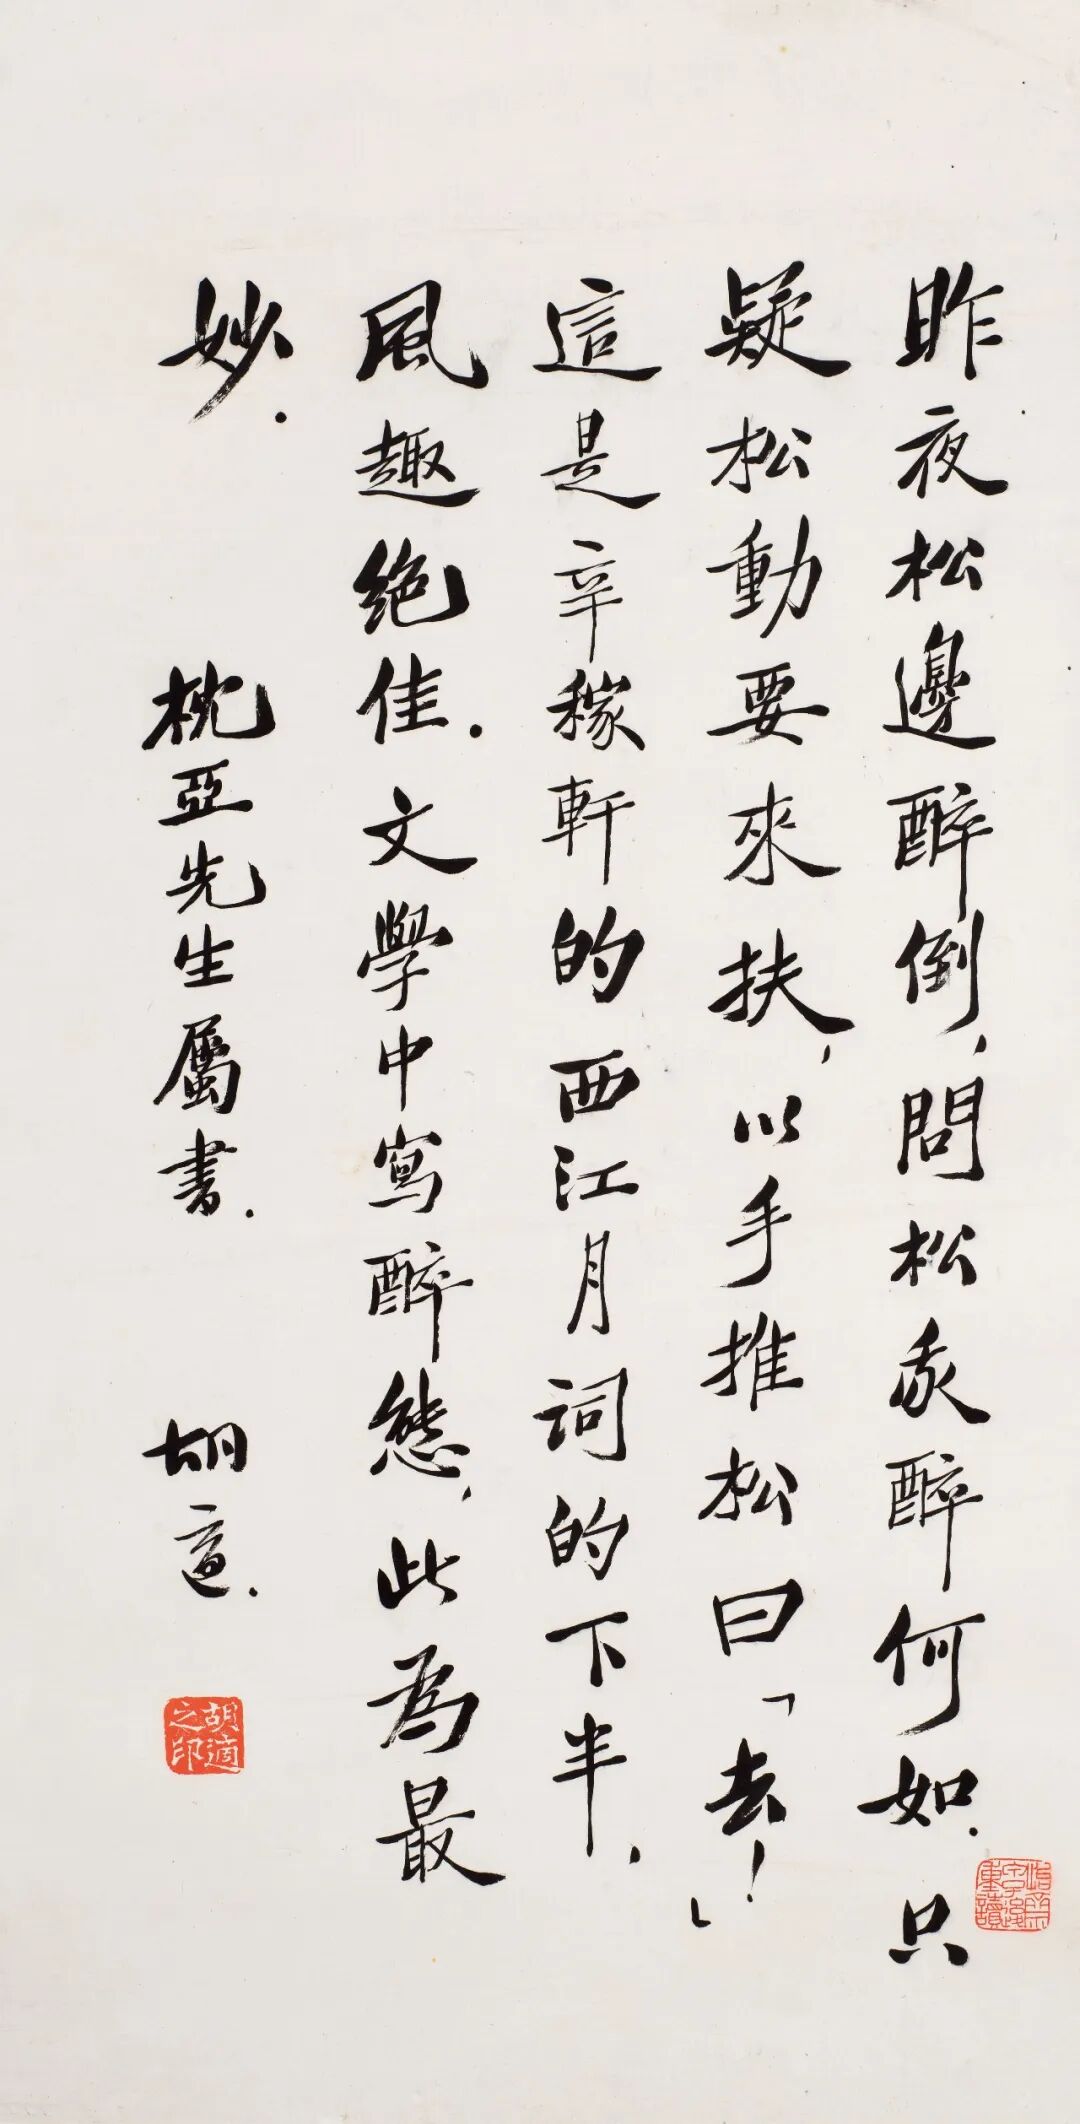 昨夜松邊醉倒，問松我醉何如．只
疑松動要來扶，以手推松曰「去！」
這是辛稼軒的西江月詞的下半，
風趣絕佳．文學中寫醉態，此為最
妙．
枕亞先生屬書．
胡適．
胡適之印